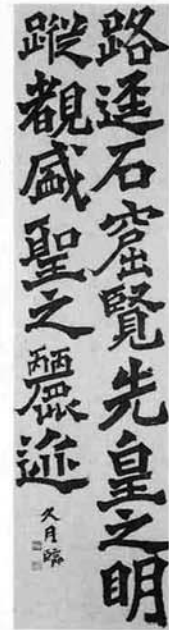 路逕石窟覽先皇之明
蹤覩盛聖之麗迹
久月臨